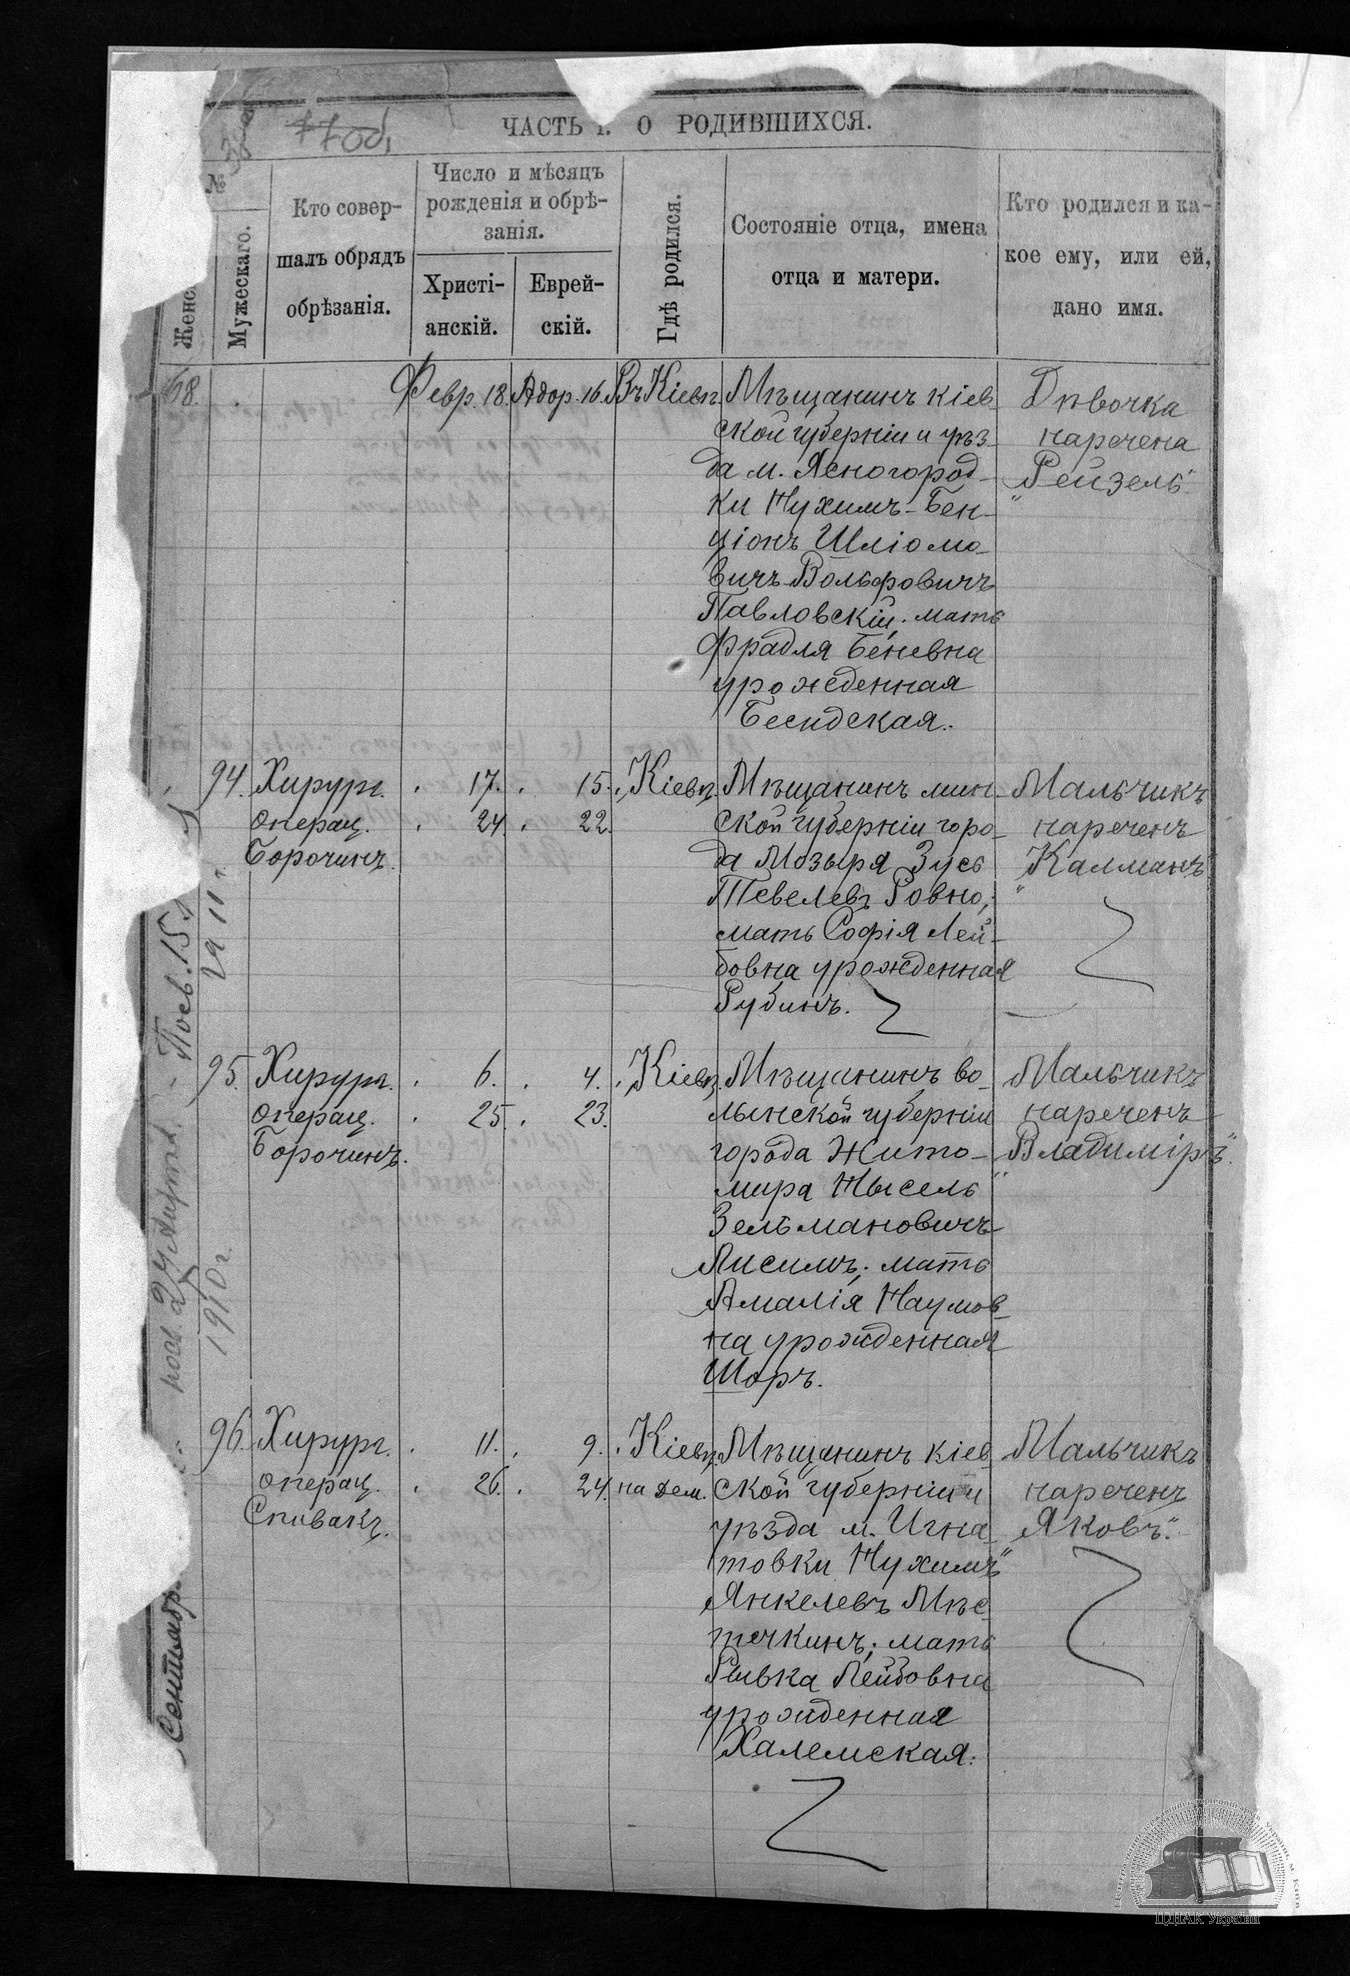 ЧАСТЬ I. О РОДИВШИХСЯ.
№
Женс
Мужескаго.
Кто совер-
шалъ обрядъ
обрѣзанія.
Число и мѣсяцъ
рожденія и обрѣ-
занія.
Христі-
анскій.
Еврей-
скій.
Гдѣ родился.
Состояніе отца, имена
отца и матери.
Кто родился и ка-
кое ему, или ей,
дано имя.
68.
Февр. 18. Адор. 16. Въ Кіевѣ.
Мѣщанинъ кіев-
ской губерніи и уѣз-
да м. Ясногород-
ки Нухимъ-Бен-
ціонъ Шліомо-
вичъ-Вольфовичъ
Павловскій; мать
Фрадля Беневна
урожденная
Бесидская.
Дѣвочка
наречена
„Рейзель“.
94. Хирург.
операц.
Борочинъ.
17. 15. Кіевѣ.
24. 22.
Мѣщанинъ мин-
ской губерніи горо-
да Мозыря Зусь
Тевелевъ Ровно;
мать Софія Лей-
бовна урожденная
Рубинъ.
Мальчикъ
нареченъ
„Калманъ“
95. Хирург.
операц.
Борочинъ.
6. 4. Кіевѣ.
25. 23.
Мѣщанинъ во-
лынской губерніи
города Жито-
мира Нысель
Зельмановичъ
Лисимъ; мать
Амалія Наумов-
на урожденная
Шоръ.
Мальчикъ
нареченъ
„Владиміръ“.
96. Хирург.
операц.
Спивакъ.
11. 9. Кіевѣ
26. 24. на Дем.
Мѣщанинъ кіев-
ской губерніи и
уѣзда м. Игна-
товки Нухимъ
Янкелевъ Мѣс-
течкинъ; мать
Рывка Лейбовна
урожденная
Халемская.
Мальчикъ
нареченъ
„Яковъ“.
1910 г.
Сентябр
ЦДІАК України